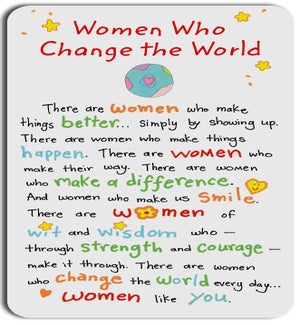 Women Who
Change the World
There are women who make
things better... simply by showing up.
There are women who make things
happen. There are women who
make their way. There are women
who make a difference.
And women who make us smile.
There are women of
wit and wisdom who –
through strength and courage –
make it through. There are women
who change the world every day...
women like you.